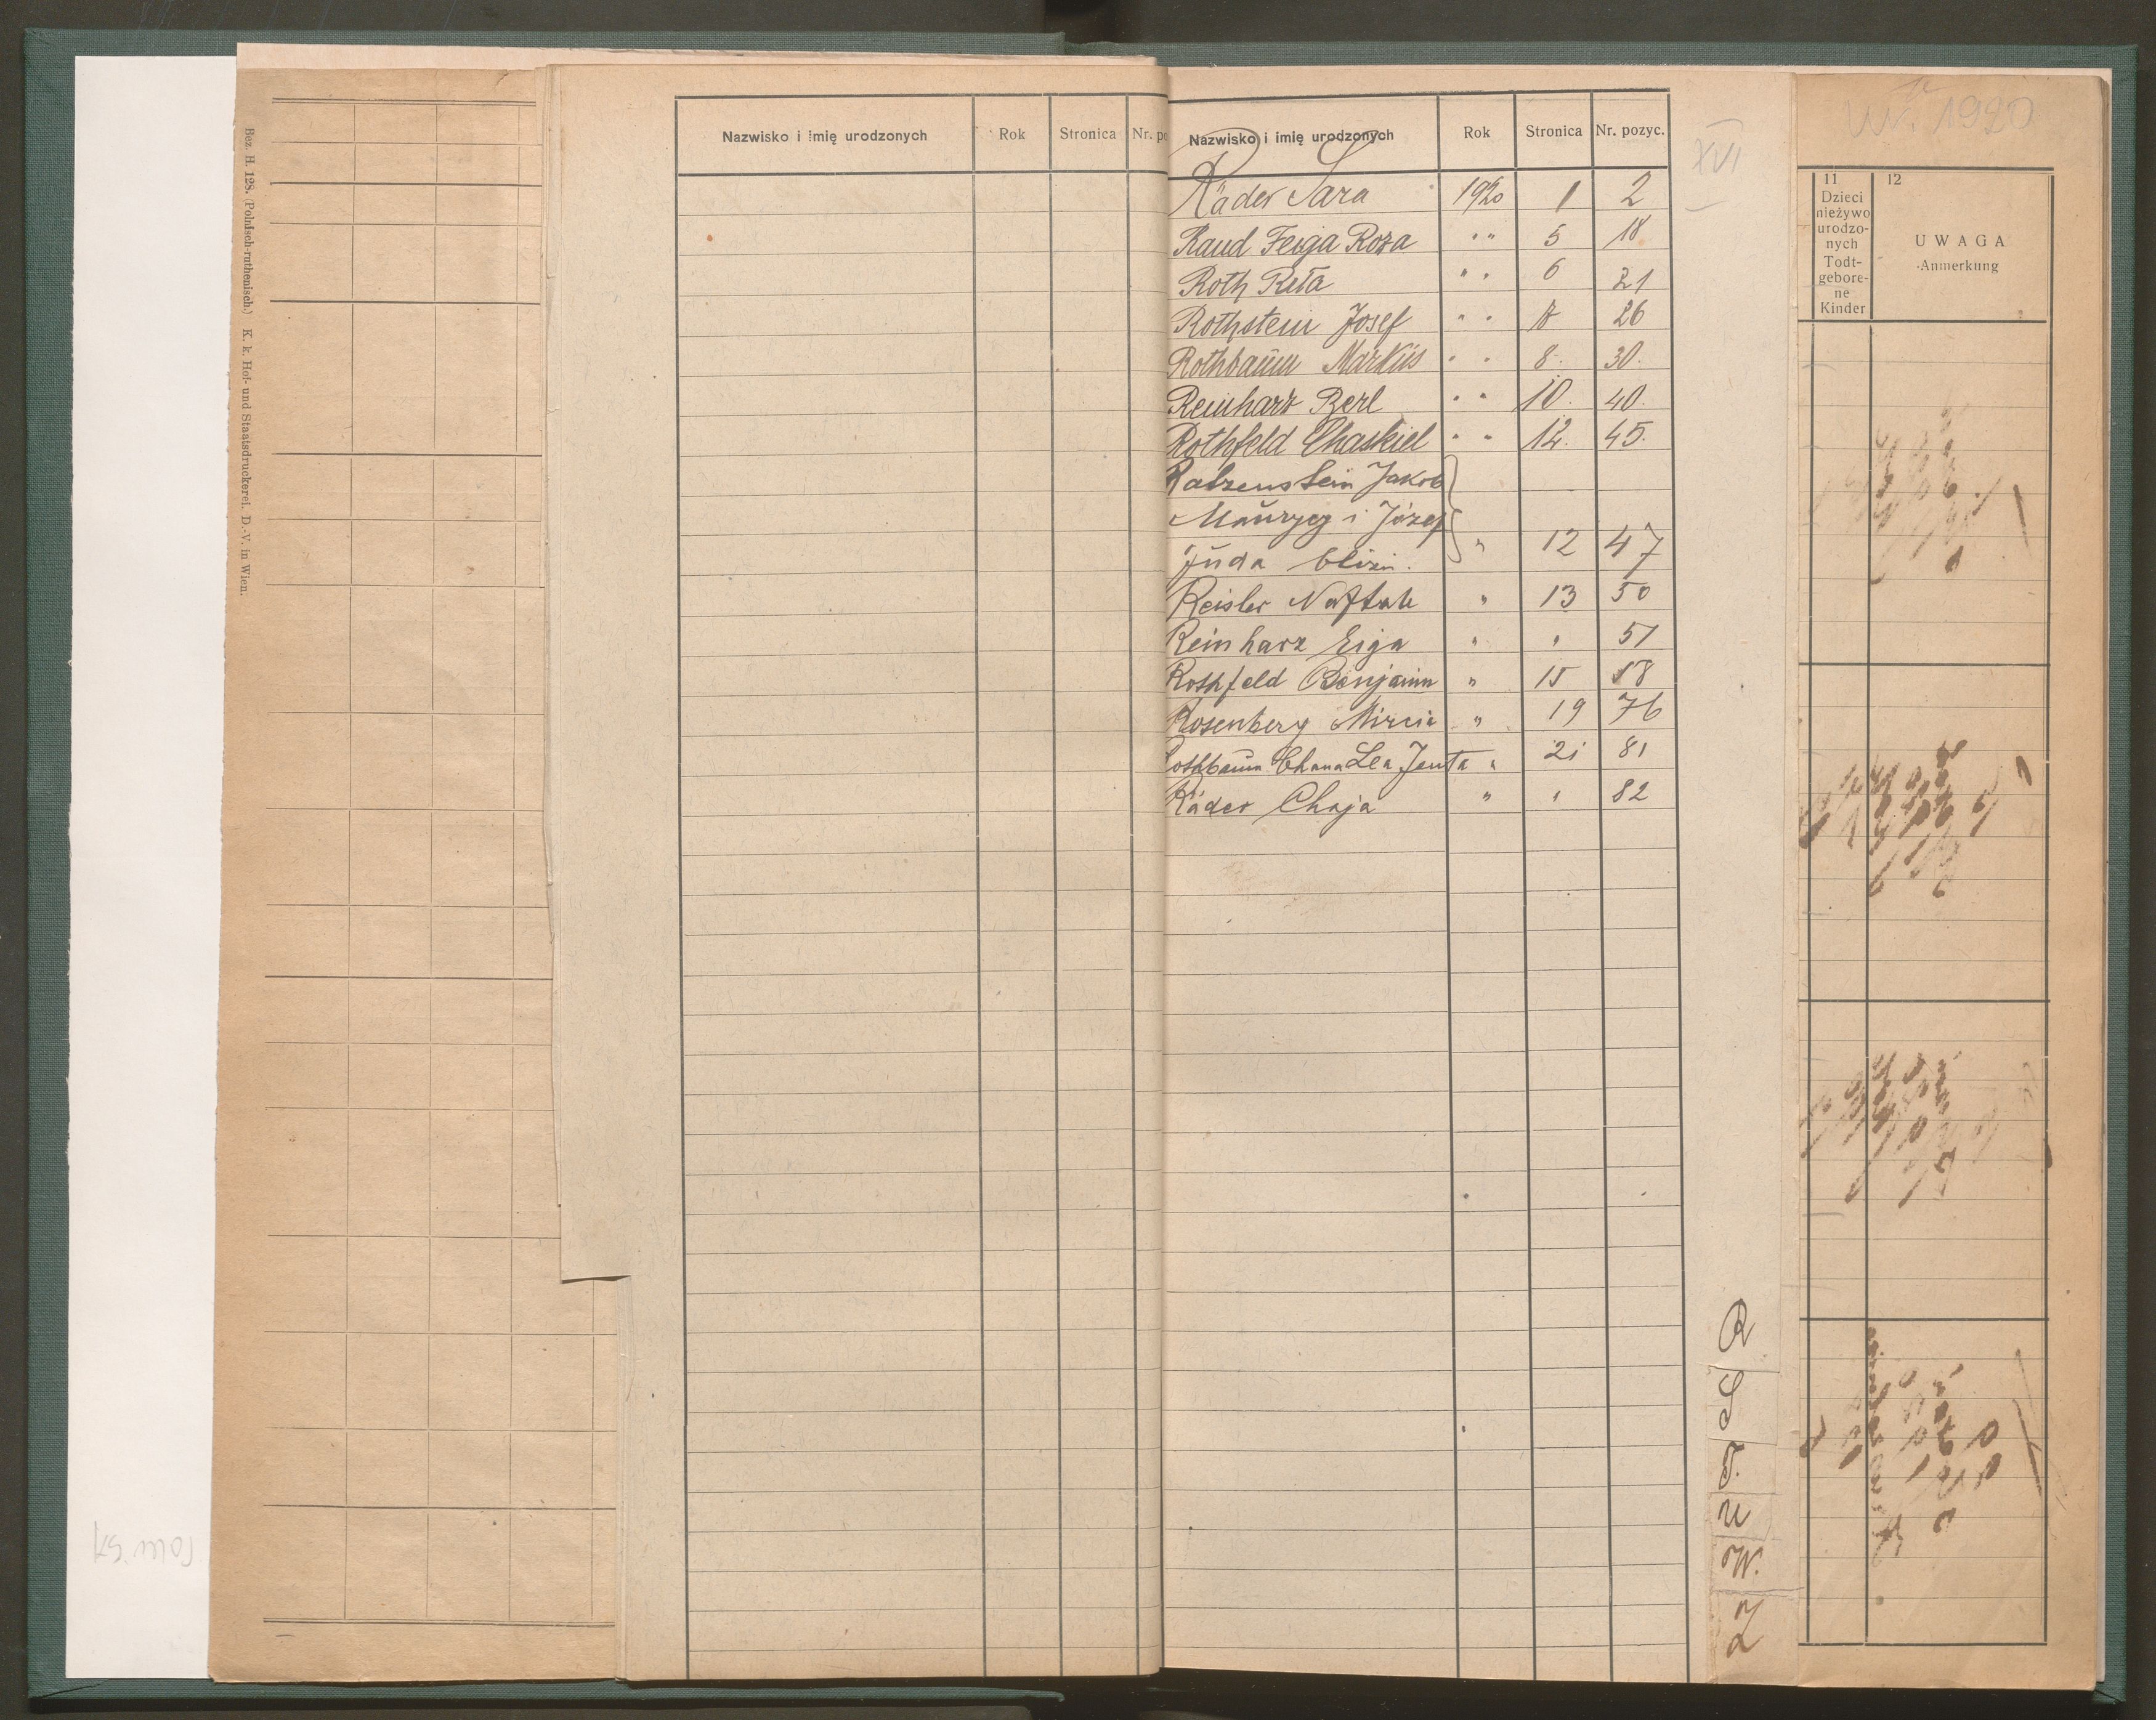 Bez. H. 128. (Polnisch-ruthenisch.) K. k. Hof- und Staatsdruckerei. D.-V. in Wien.
Nazwisko i imię urodzonych Rok Stronica Nr. po
Nazwisko i imię urodzonych Rok Stronica Nr. pozyc.
Räder Sara 1920 1 2
Raud Feiga Roza " " 5 18
Roth Reta " " 6 21
Rothstein Josef " " 8 26
Rothbaum Markus " " 8. 30.
Reinharz Berl " " 10. 40.
Rothfeld Chaskiel " " 12. 45.
Ratzenstein Jakob
Maurycy i Józef
Juda bliźn. " 12 47
Reisler Naftali " 13 50
Reinharz Eiga " " 51
Rothfeld Benjamin " 15 58
Rosenberg Mircia " 19 76
Rothbaum Chana Lea Jenta " 21 81
Räder Chaja " " 82
XVI
R
S
T.
U
W.
Z
1920
11 12
Dzieci
nieżywo
urodzo-
nych
Todt-
gebore-
ne
Kinder
UWAGA
Anmerkung